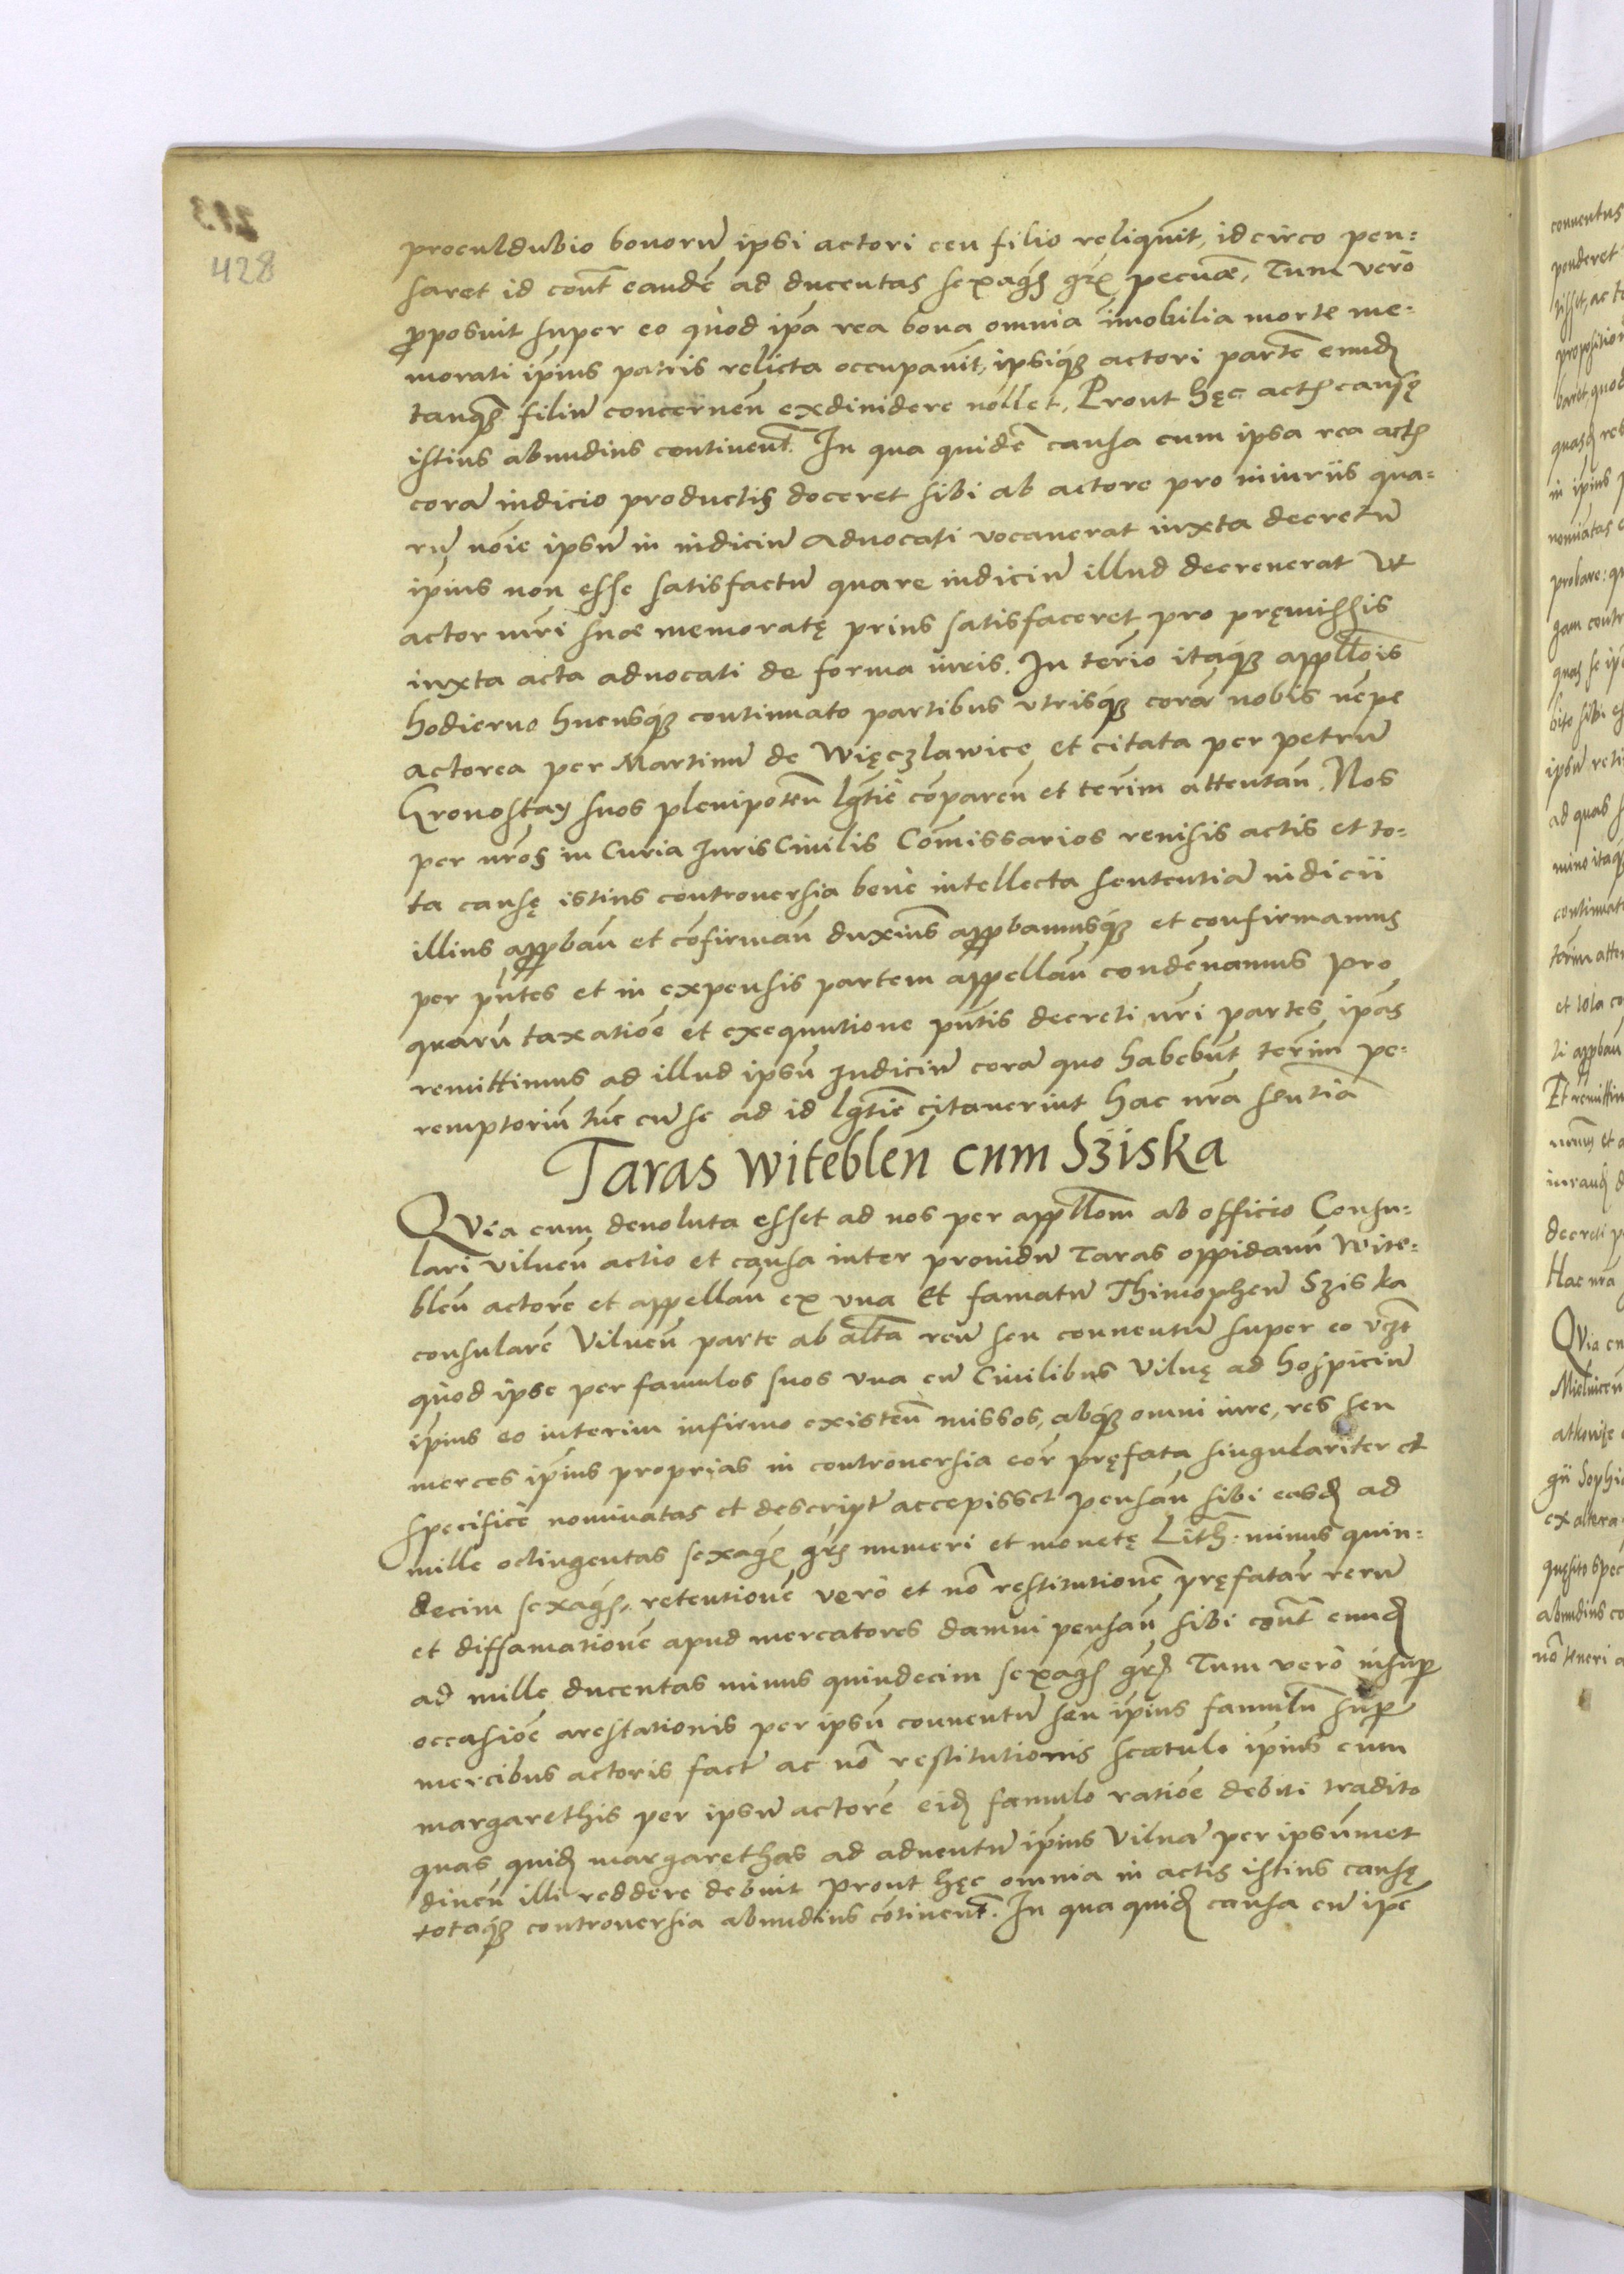 428
proculdubio bonorũ ipsi actori ceu filio reliquit, idcirco pen-
saret id cont̃ eandẽ ad ducentas sexagẽs grẽ pecuæ, Tum verò
proposuit super eo quòd ip̃a rea bona omnia im̃obilia morte me-
morati ip̃ius patris relicta occupauit, ipsiq́ȝ actori partẽ eiusd̃
tanq̃ȝ filiũ concerneñ exdiuidere nollet, Prout hęc actis causę
istius abundius continenť. In qua quidẽ causa cum ipsa rea actis
corã iudicio productis doceret sibi ab actore pro iniuriis qua-
rũ nõie ipsũ in iudiciũ aduocati vocauerat iuxta decretũ
ip̃ius non esse satisfactũ quare iudiciũ illud decreuerat vt
actor mr̃i suæ memoratę prius satisfaceret pro pręmissis
iuxta acta aduocati de forma iuris. In ter̃io itaq́ȝ appll̃ois
hodierno hucusq́ȝ continuato partibus vtrisq́ȝ corã nobis nẽpe
actorea per Martinũ de Więczlawice et citata per petrũ
Chronostay suos plenipoteñ lgt̃iẽ cõpareñ et ter̃im attentañ, Nos
per nr̃os in Curia Iuris Ciuilis Com̃issarios reuisis actis et to-
ta causę istius controuersia benè intellecta sententiã iudicii
illius approbañ et cõfirmañ duxim̃s approbamusq́ȝ et confirmamus
per pñtes et in expensis partem appellañ condẽnamus pro
quarũ taxatiõe et exequutione pñtis decreti nr̃i partes ip̃as
remittimus ad illud ipsũ Iudiciũ corã quo habebũt ter̃im pe-
remptoriũ tũc cũ se ad id lgt̃iẽ citauerint hac nr̃a sen̄tia
Taras witebleñ cum Sziska
Qvia cum deuoluta esset ad nos per appll̃om ab officio Consu-
lari vilneñ actio et causa inter prouidũ Taras oppidanũ wite-
bleñ actorẽ et appellañ ex vna Et famatũ Thimopheũ Sziska
consularẽ Vilneñ parte ab alt̃a reũ seu conuentũ super eo vczt
quòd ipse per famulos suos vna cũ Ciuilibus Vilnę ad hospiciũ
ip̃ius eo interim infirmo existeñ missos, absq́ȝ omni iure, res seu
merces ip̃ius proprias in controuersia eor̃ pręfata singulariter et
specificè nominatas et descript̃ accepisset pensañ sibi easd̃ ad
mille octingentas sexagẽ grs numeri et monetę Lith: minus quin-
decim sexagẽs, retentionẽ verò et nõ restitutionẽ pręfatar̃ rerũ
et diffamationẽ apud mercatores damni pensañ sibi cont̃ eund̃
ad mille ducentas minus quindecim sexagẽs grs̃ Tum verò insup̃
occasiõe arestationis per ipsũ conuentũ seu ip̃ius famulũ sup̃
mercibus actoris fact̃ ac nõ restitutionis scatulo ip̃ius cum
margarethis per ipsũ actorẽ eid̃ famulo ratiõe debiti tradito
quas quid̃ margarethas ad aduentũ ip̃ius Vilnã per ipsũmet
dineñ illi reddere debuit prout hęc omnia in actis istius causę
totaq́ȝ controuersia abundius cõtinenť. In qua quid̃ causa cũ ip̃e